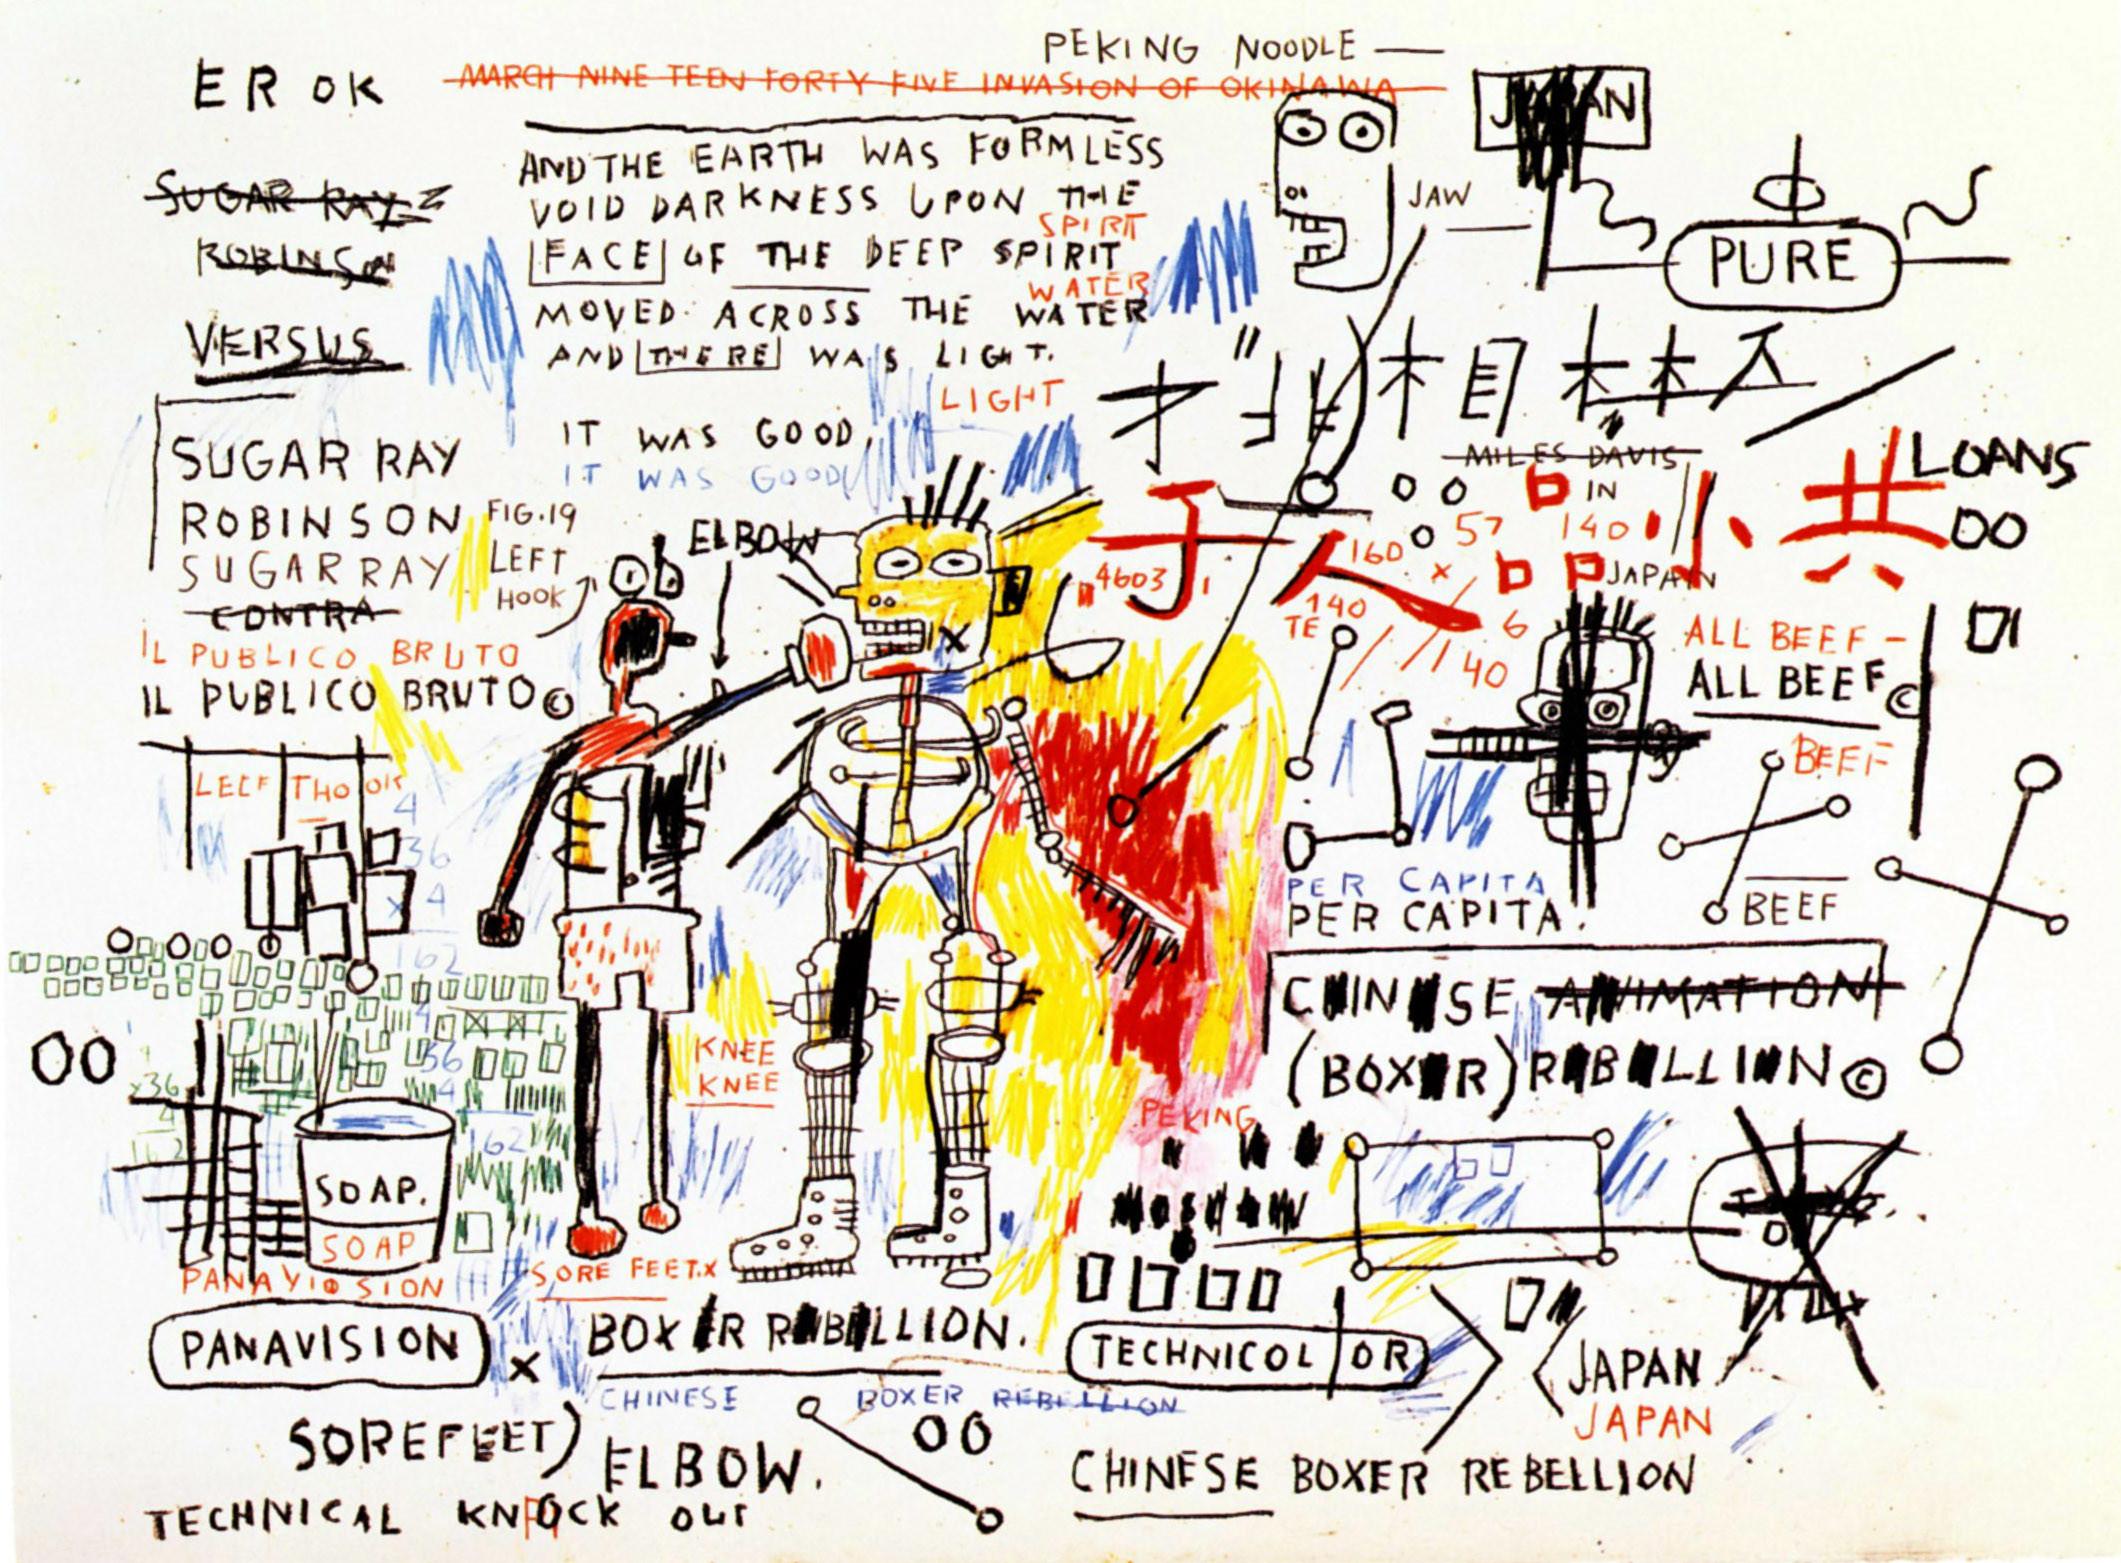 PEKING NOODLE —
ER OK
MARCH NINE TEEN FORTY FIVE INVASION OF OKINAWA
JAPAN
AND THE EARTH WAS FORMLESS
VOID DARKNESS UPON THE
SPIRIT
FACE OF THE DEEP SPIRIT
WATER
MOVED ACROSS THE WATER
AND THERE WAS LIGHT.
LIGHT
IT WAS GOOD
IT WAS GOOD
JAW
PURE
SUGAR RAY
ROBINSON
VERSUS
SUGAR RAY
ROBINSON
SUGAR RAY
CONTRA
IL PUBLICO BRUTO
IL PUBLICO BRUTO©
FIG.19
LEFT
HOOK
ELBOW
MILES DAVIS
IN
JAPAN
LOANS
00
子 人 品 小 共
4603
160
57
140
x
140
TE
6
140
ALL BEEF -
ALL BEEF©
BEEF
BEEF
PER CAPITA
PER CAPITA.
CHINESE ANIMATION
(BOXER) REBELLION ©
4
36
x 4
162
4
36
4
162
00
x36
4
162
KNEE
KNEE
PEKING
SOAP.
SOAP
PANAVISION
SORE FEET.X
PANAVISION
x
BOXER REBELLION.
TECHNICOLOR
JAPAN
JAPAN
CHINESE BOXER REBELLION
SOREFEET)
ELBOW.
00
CHINESE BOXER REBELLION
TECHNICAL KNOCK OUT